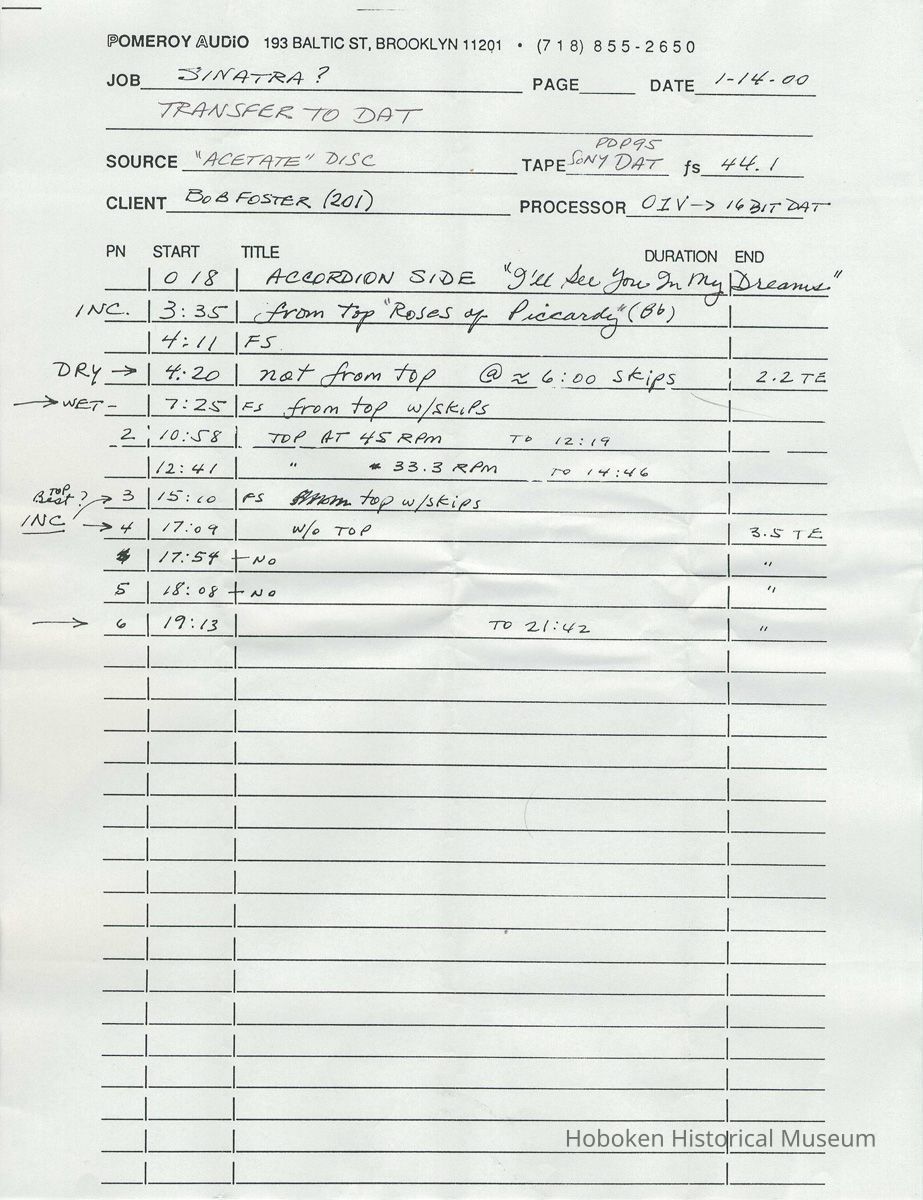 POMEROY AUDIO 193 BALTIC ST, BROOKLYN 11201 • (718) 855-2650
JOB SINATRA? PAGE DATE 1-14-00
TRANSFER TO DAT
PDP95
SOURCE "ACETATE" DISC TAPE SONY DAT fs 44.1
CLIENT BOB FOSTER (201) PROCESSOR OIV -> 16 BIT DAT
PN START TITLE DURATION END
0 18 ACCORDION SIDE "I'll See You In My Dreams"
INC. 3:35 from top "Roses of Piccardy" (Bb)
4:11 FS
DRY → 4:20 not from top @ ≈ 6:00 skips 2.2 TE
→ WET - 7:25 FS from top w/skips
2 10:58 TOP AT 45 RPM TO 12:19
12:41 " 33.3 RPM TO 14:46
TOP
Best? → 3 15:10 FS top w/skips
INC → 4 17:09 w/o TOP 3.5 TE
17:54 - NO "
5 18:08 - NO "
→ 6 19:13 TO 21:42 "
Hoboken Historical Museum